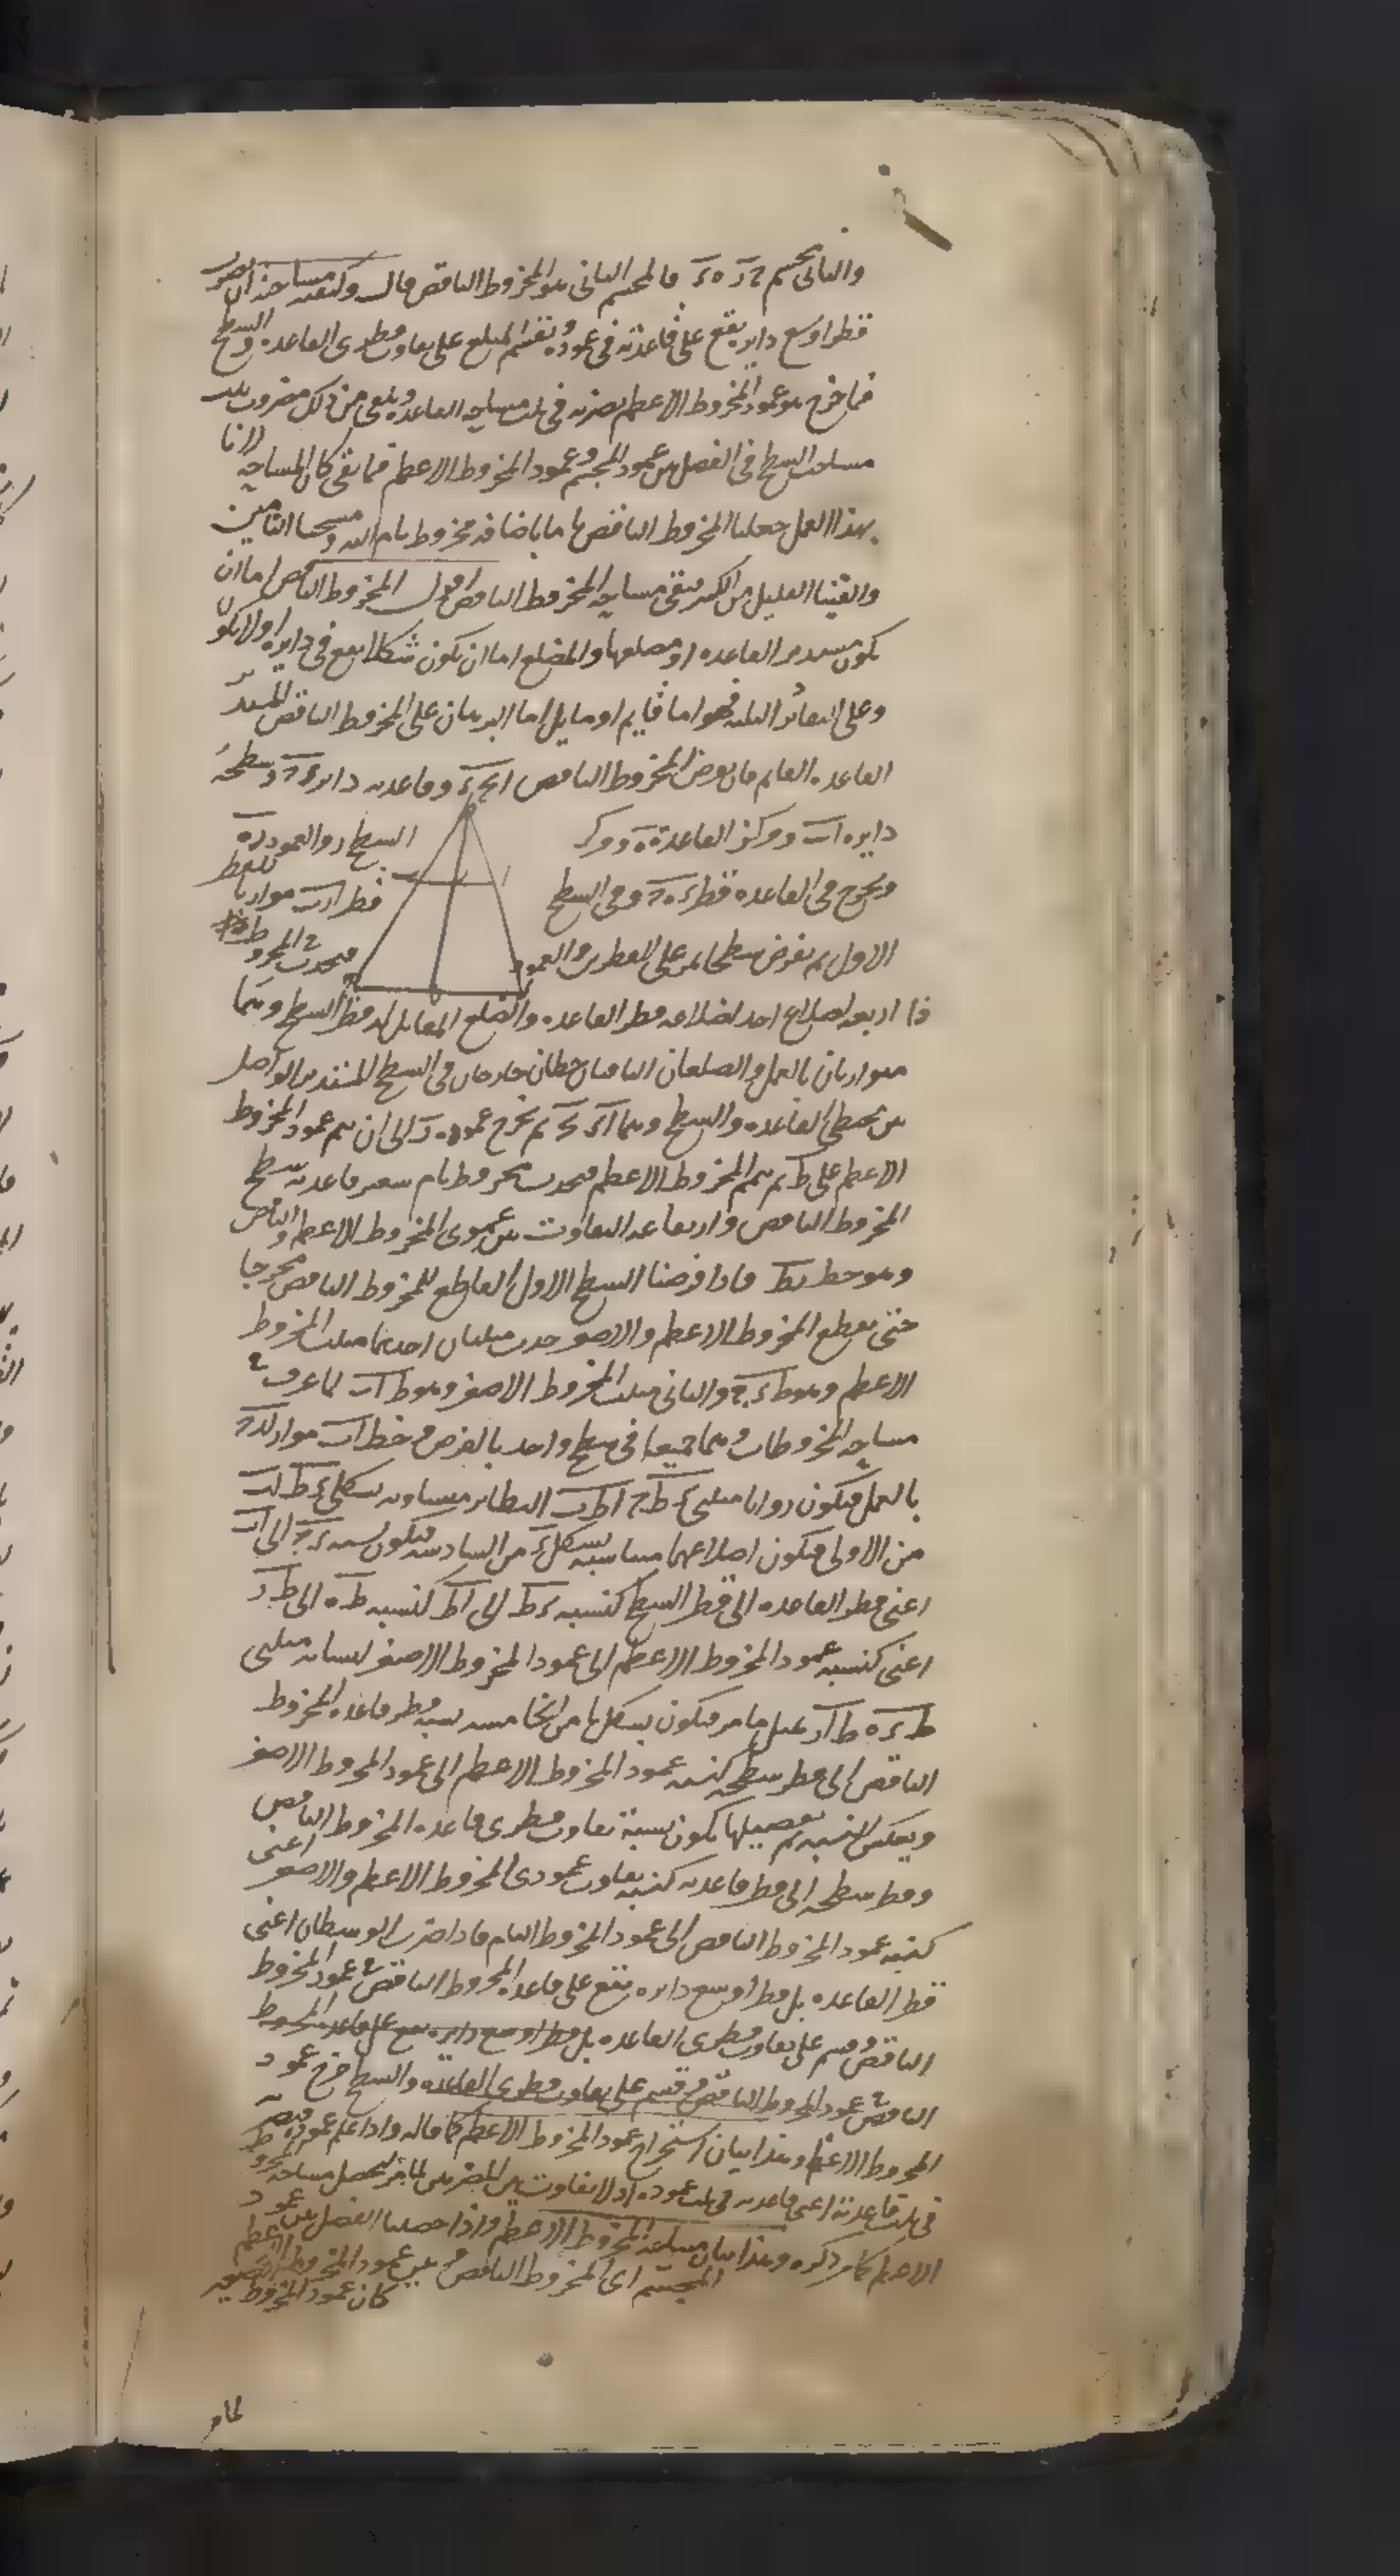 والثاني مجسم ح ر ه ء فالمجسم الثاني هو المخروط الناقص قال وكيفية مساحته ان نضرب
قطر اوسع دايرة يقع على قاعدته في عموده ونقسم المبلغ على تفاوت قطري القاعدة والسطح
فما خرج هو عمود المخروط الاعظم نضربه في ثلث مساحة القاعدة ونلقي من ذلك مضروب ثلث
مساحة السطح في الفضل بين عمود المجسم وعمود المخروط الاعظم فما بقي كان المساحة لانا
بهذا العمل جعلنا المخروط الناقص تاما باضافة مخروط تام اليه ومسحنا التامين
والقينا القليل من الكثير فبقي مساحة المخروط الناقص اقول المخروط الناقص اما ان
يكون مستدير القاعدة او مضلعها والمضلع اما ان يكون شكلا يقع في دايرة او لا يكون
وعلى التقادير الثلثة فهو اما قايم او مايل اما البرهان على المخروط الناقص المستدير
القاعدة القايم فان نفرض المخروط الناقص ا ب ح ء وقاعدته دايرة ء ح وسطحه
دايرة ا ب ومركز القاعدة ه ومركز السطح ر والعمود ر ه
ونخرج في القاعدة قطر ء ه ح وفي السطح قطر ا ر ب موازيا للقطر
الاول ثم نفرض سطحا يمر على القطرين والعمود فيحدث في المخروط
ذا اربعة اضلاع احد اضلاعه قطر القاعدة والضلع المقابل له قطر السطح وهما
متوازيان بالعمل والضلعان الباقيان خطان خارجان في السطح المستدير الواصل
بين محيطي القاعدة والسطح وهما ا ء ب ح ثم نخرج عمود ه ر الى ان يتم عمود المخروط
الاعظم على ط ثم نتمم المخروط الاعظم فيحدث مخروط تام صغير قاعدته سطح
المخروط الناقص وارتفاعه التفاوت بين عمودي المخروط الاعظم والناقص
وهو خط ر ط فاذا فرضنا السطح الاول القاطع للمخروط الناقص مخرجا
حتى يقطع المخروط الاعظم والاصغر حدث مثلثان احدهما مثلث المخروط
الاعظم وهو ط ء ح والثاني مثلث المخروط الاصغر وهو ط ا ب لما عرف في
مساحة المخروطات وهما جميعا في سطح واحد بالفرض وخط ا ب مواز لـ ء ح
بالعمل فيكون زوايا مثلثي ء ط ح ا ط ب النظاير متساوية بشكلي
من الاولى فيكون اضلاعهما متناسبة بشكل ء من السادسة فيكون نسبة ء ح الى ا ب
اعني قطر القاعدة الى قطر السطح كنسبة ء ط الى ا ط كنسبة ط ه الى ط ر
اعني كنسبة عمود المخروط الاعظم الى عمود المخروط الاصغر لتشابه مثلثي
ط ء ه ط ا ر بمثل ما مر فيكون بشكل يا من الخامسة نسبة قطر قاعدة المخروط
الناقص الى قطر سطحه كنسبة عمود المخروط الاعظم الى عمود المخروط الاصغر
وبعكس النسبة ثم تفصيلها يكون نسبة تفاوت قطري قاعدة المخروط الناقص
وقطر سطحه الى قطر قاعدته كنسبة تفاوت عمودي المخروط الاعظم والاصغر اعني
كنسبة عمود المخروط الناقص الى عمود المخروط التام فاذا ضرب الوسطان اعني
قطر القاعدة بل قطر اوسع دايرة يقع على قاعدة المخروط الناقص في عمود المخروط
الناقص وقسم على تفاوت قطري القاعدة بل قطر اوسع دايرة يقع على قاعدة المخروط
الناقص في عمود المخروط الناقص وقسم على تفاوت قطري القاعدة والسطح خرج عمود
المخروط الاعظم وهذا بيان استخراج عمود المخروط الاعظم كما قاله واذا علم عموده فنضربه
في ثلث قاعدته اعني قاعدته في ثلث عموده اذ لا تفاوت بين المضربين لما مر ليحصل مساحة المخروط
الاعظم كما مر ذكره وهذا بيان مساحة المخروط الاعظم واذا حصلنا الفضل بين عمود
المجسم اي المخروط الناقص وبين عمود المخروط الاعظم
كان عمود المخروط الصغير
لما مر